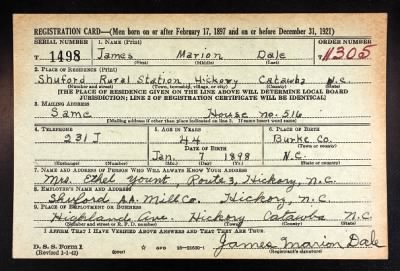 REGISTRATION CARD—(Men born on or after February 17, 1897 and on or before December 31, 1921)
SERIAL NUMBER 1. NAME (Print) ORDER NUMBER
T 1498 James Marion Dale T 11305
(First) (Middle) (Last)
2. PLACE OF RESIDENCE (Print)
Shuford Rural Station Hickory Catawba N.C.
(Number and street) (Town, township, village, or city) (County) (State)
[THE PLACE OF RESIDENCE GIVEN ON THE LINE ABOVE WILL DETERMINE LOCAL BOARD
JURISDICTION; LINE 2 OF REGISTRATION CERTIFICATE WILL BE IDENTICAL]
3. MAILING ADDRESS
Same House no. 516
[Mailing address if other than place indicated on line 2. If same insert word same]
4. TELEPHONE 5. AGE IN YEARS 6. PLACE OF BIRTH
231J 44 Burke Co.
DATE OF BIRTH (Town or county)
Jan. 1898 N.C.
(Exchange) (Number) (Mo.) (Day) (Yr.) (State or country)
7. NAME AND ADDRESS OF PERSON WHO WILL ALWAYS KNOW YOUR ADDRESS
Mrs. Ethel Yount, Route 3, Hickory, N.C.
8. EMPLOYER'S NAME AND ADDRESS
Shuford A.A. Mill Co. Hickory, N.C.
9. PLACE OF EMPLOYMENT OR BUSINESS
Highland Ave. Hickory Catawba N.C.
(Number and street or R. F. D. number) (Town) (County) (State)
I AFFIRM THAT I HAVE VERIFIED ABOVE ANSWERS AND THAT THEY ARE TRUE.
D. S. S. Form 1
(Revised 1-1-42) (over) GPO James Marion Dale
(Registrant's signature)